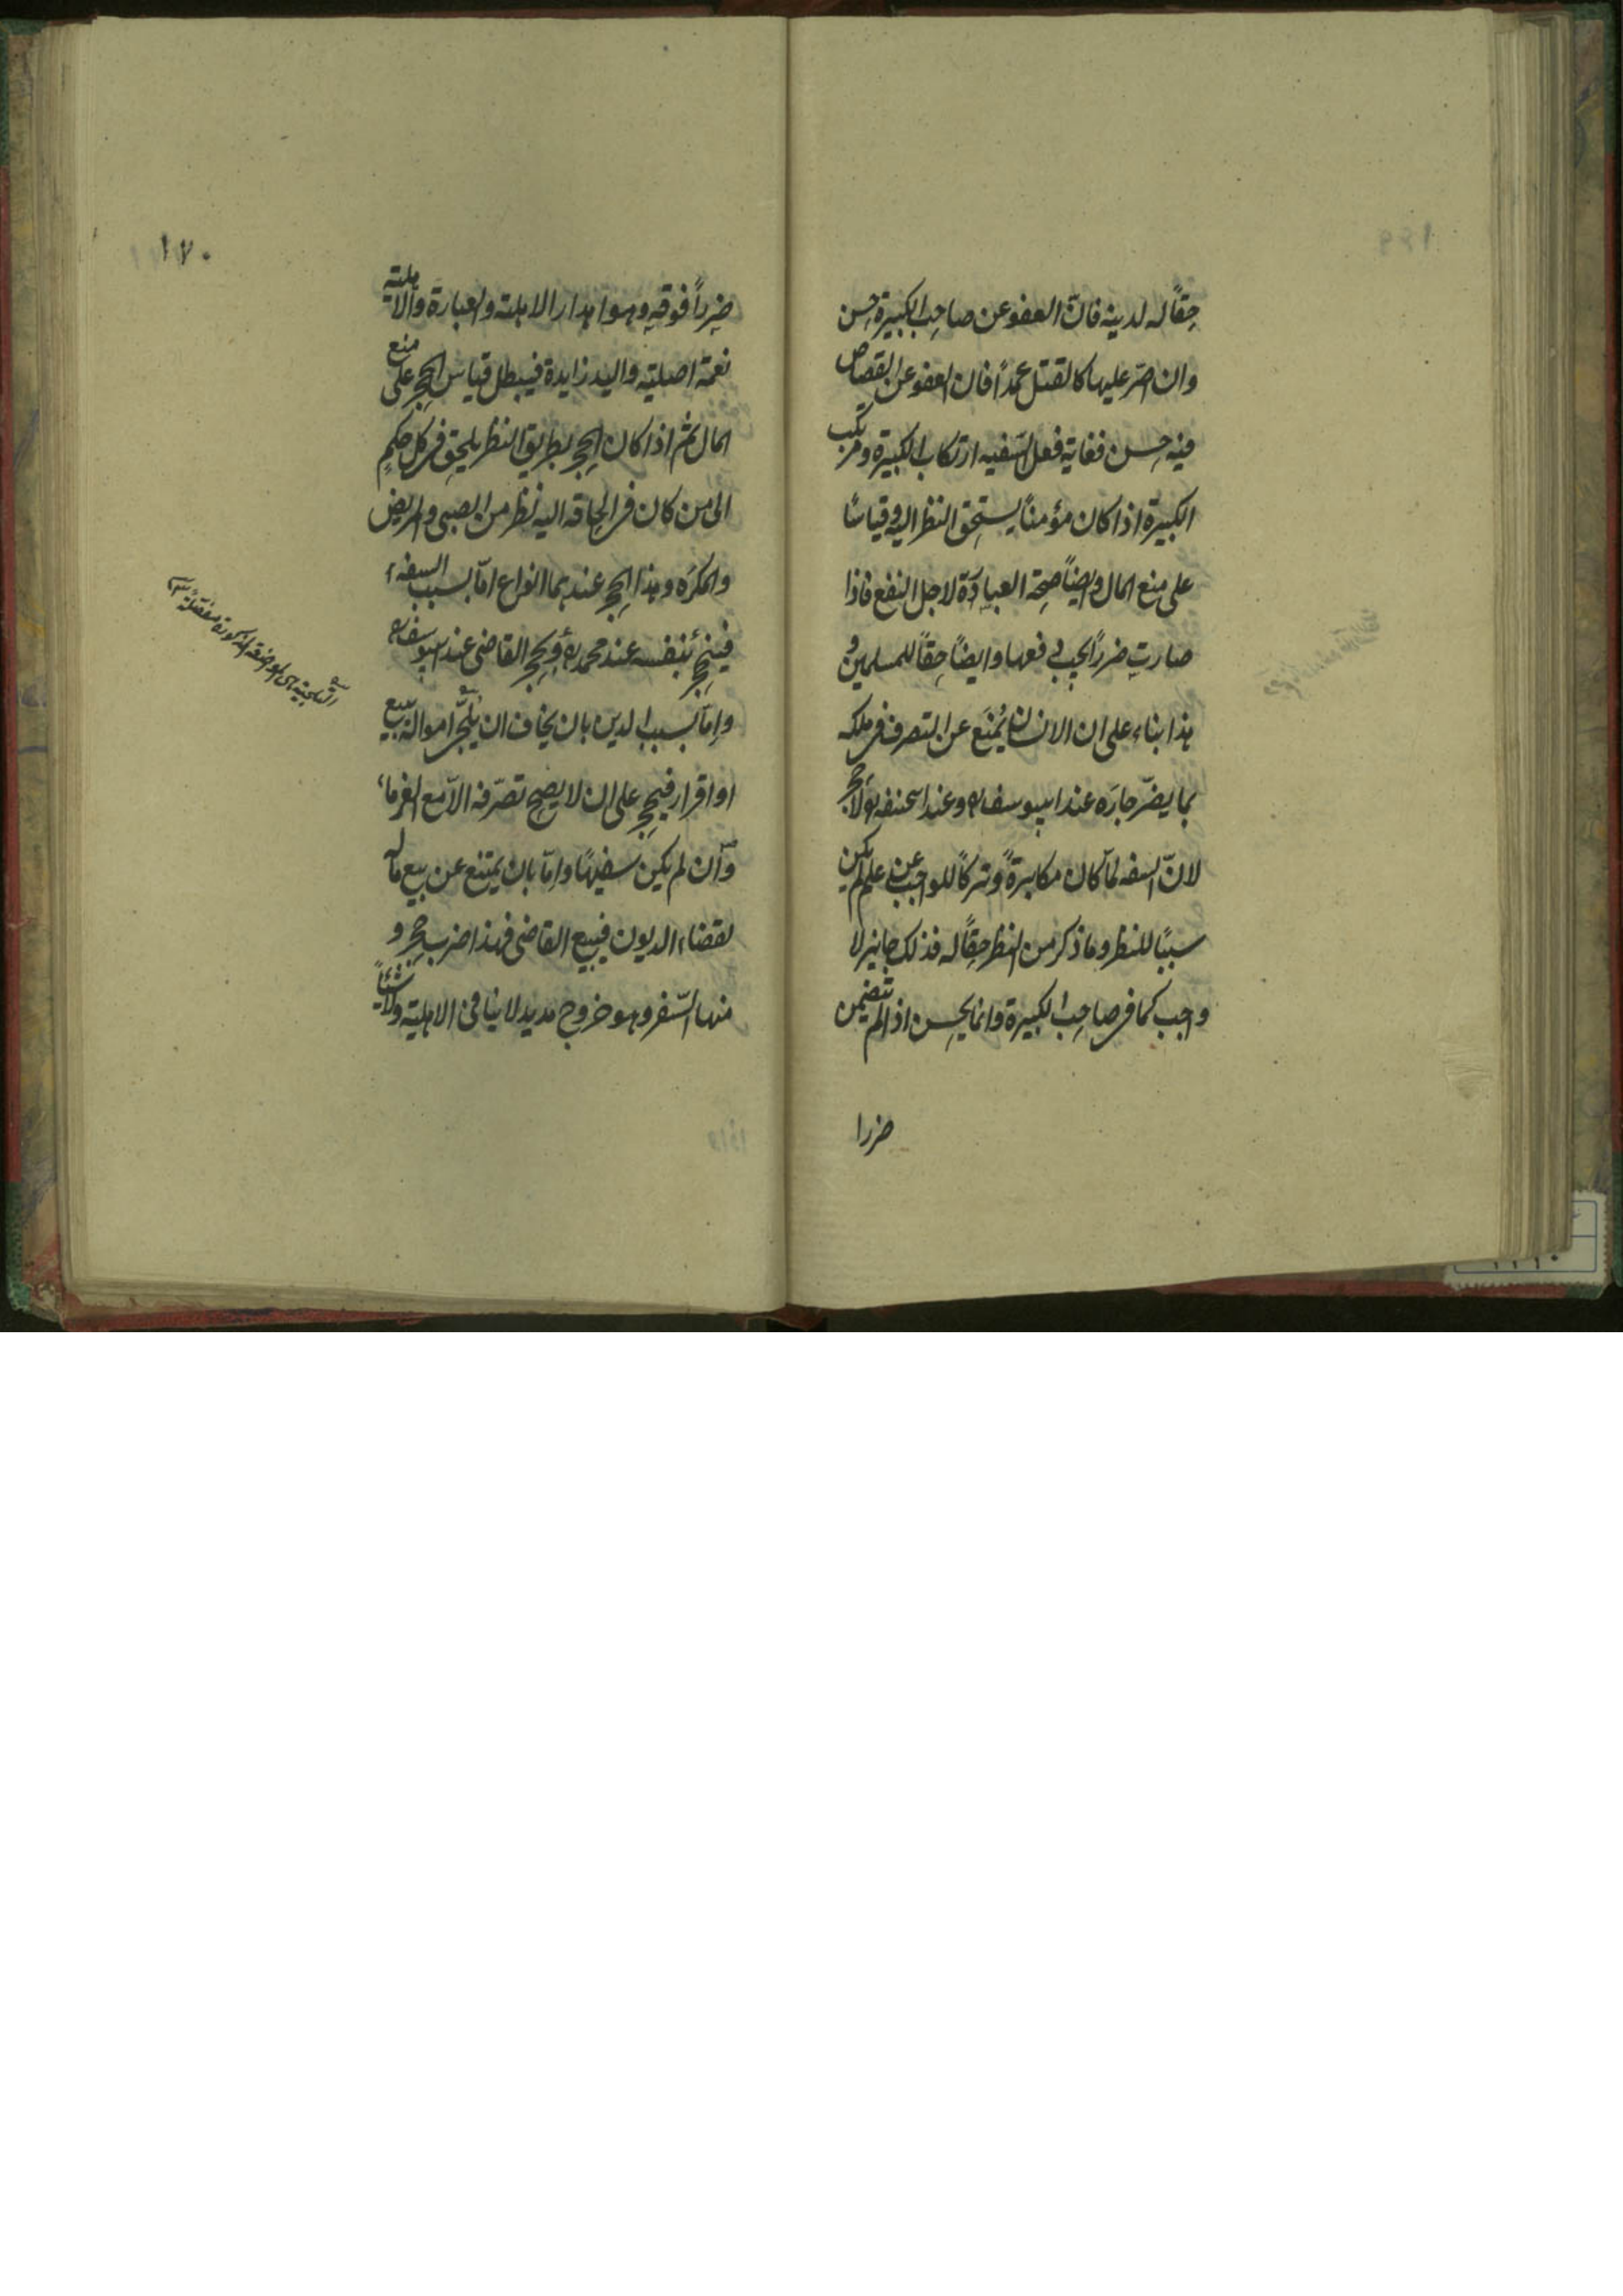 حقًا له لدينه فانّ العفو عن صاحب الكبيرة حسن
وان اصرّ عليها كالقتل عمدًا فان العفو عن القصاص
فيه حسن فغاية فعل السّفيه ارتكاب الكبيرة ومرتكب
الكبيرة اذا كان مؤمنًا يستحق النظر اليه وقياسًا
على منع المال وايضًا صحة العبادة لاجل النفع فاذا
صارت ضررًا يجب دفعها وايضًا حقًا للمسلمين و
هذا بناء على ان الانسان يُمنَع عن التصرف فى ملكه
بما يضرّ جاره عند ابيوسف ره وعند ابيحنيفه ره لا حجر
لانّ السفه لمّا كان مكابرةً وتركًا للواجب عن علم لم يكن
سببًا للنظر وما ذكر من النظر حقًا له فذلك جايز لا
واجب كما فى صاحب الكبيرة وانما يحسن اذا لم تتضمن
ضررا
١٧٠
ضررًا فوقه وهو اهدار الاهلية والعبارة والاهلية
نعمة اصلية واليد زايدة فيبطل قياس الحجر على منع
المال ثم اذا كان الحجر بطريق النظر يلحق فى كل حكمٍ
الى من كان فى الحاقه اليه نظر من الصبى والمريض
والمكرَه وهذا الحجر عندهما انواع امّا بسبب السفه
فينحجر بنفسه عند محمد ره وبحجر القاضى عند ابيوسف ره
وامّا بسبب الدين بان يخاف ان يُلجّئ امواله ببيع
او اقرار فيحجر على ان لا يصح تصرّفه الّا مع الغرماء
وان لم يكن سفيهًا وامّا بان يمتنع عن بيع ماله
لقضاء الديون فيبيع القاضى فهذا ضرب حجر و
منها السّفر وهو خروج مديد لا ينافى الاهلية ولا شيئًا
التلجية هى المواضعة المذكورة مفصّلة